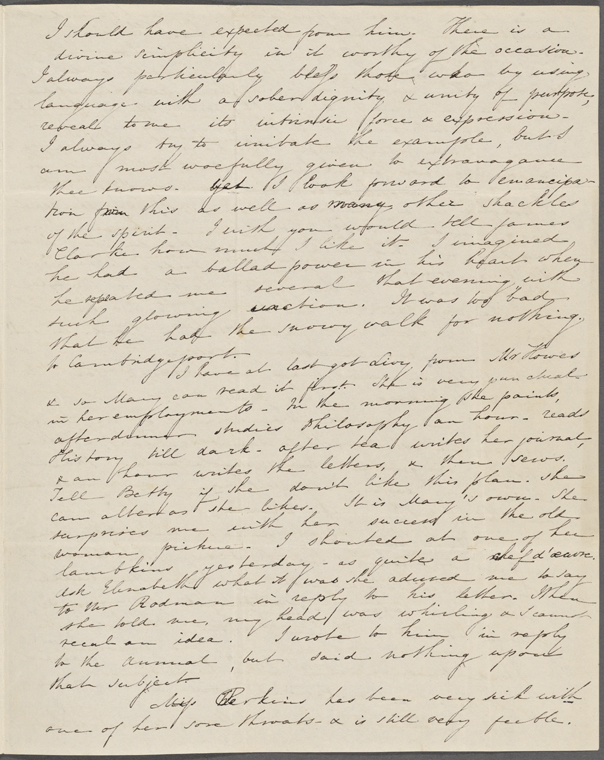 I should have expected from him. There is a
divine simplicity in it worthy of the occasion.
I always particularly bless those who by using
language with a sober dignity & unity of purpose,
reveal to me its intrinsic force & expression.
I always try to imitate the example, but I
am most woefully given to extravagance
thee knows. Yet I look forward to emancipa-
tion from this as well as many other shackles
of the spirit. I wish you would tell James
Clarke how much I like it. I imagined
he had a ballad power in his heart when
he repeated me several that evening with
such glowing unction. It was too bad
that he had the snowy walk for nothing,
to Cambridgeport.
I have at last got Livy from Mr Howes
& so Mary can read it first. She is very punctual
in her employments. In the morning she paints,
after dinner studies Philosophy an hour. reads
History till dark. after tea writes her journal,
& an hour writes the letters, & then sews.
Tell Betty if she don't like this plan. she
can alter as she likes. It is Mary's own. She
surprises me with her success in the old
woman picture. I shouted at one of her
lambkins yesterday. as quite a chef d'oeuvre.
Ask Elizabeth what it was she advised me to say
to Mr Rodman in reply to his letter. When
she told me, my head was whirling & I cannot
recal an idea. I wrote to him in reply
to the annual, but said nothing upon
that subject
Miss Perkins has been very sick with
one of her sore throats. & is still very feeble.